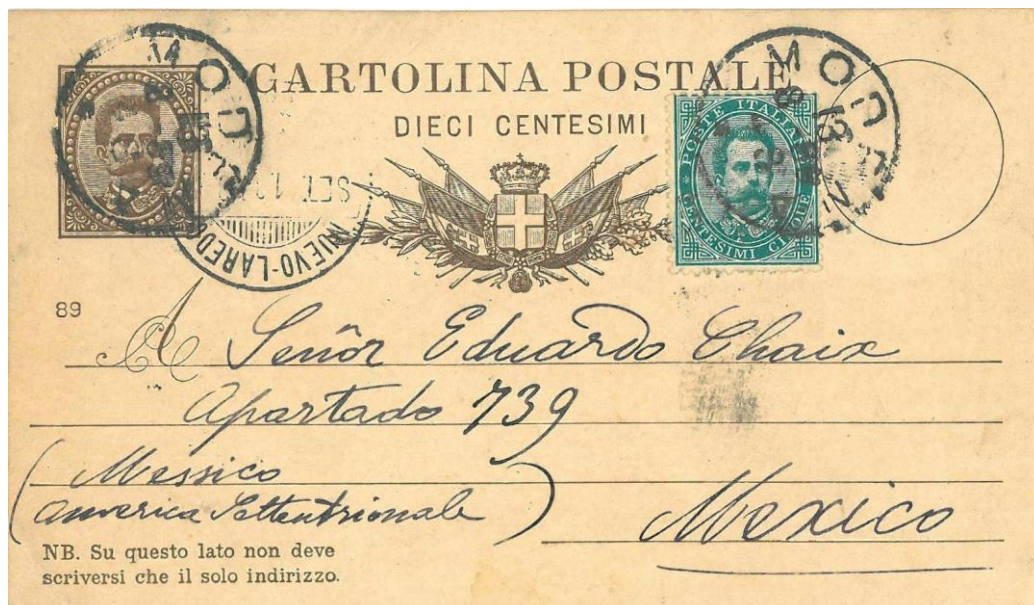 CARTOLINA POSTALE
DIECI CENTESIMI
POSTE ITALIANE
CENTESIMI CINQUE
SET. 1
NUEVO-LAREDO
89
A Señor Eduardo Chaix
Apartado 739
(Messico
America Settentrionale)
Mexico
NB. Su questo lato non deve
scriversi che il solo indirizzo.